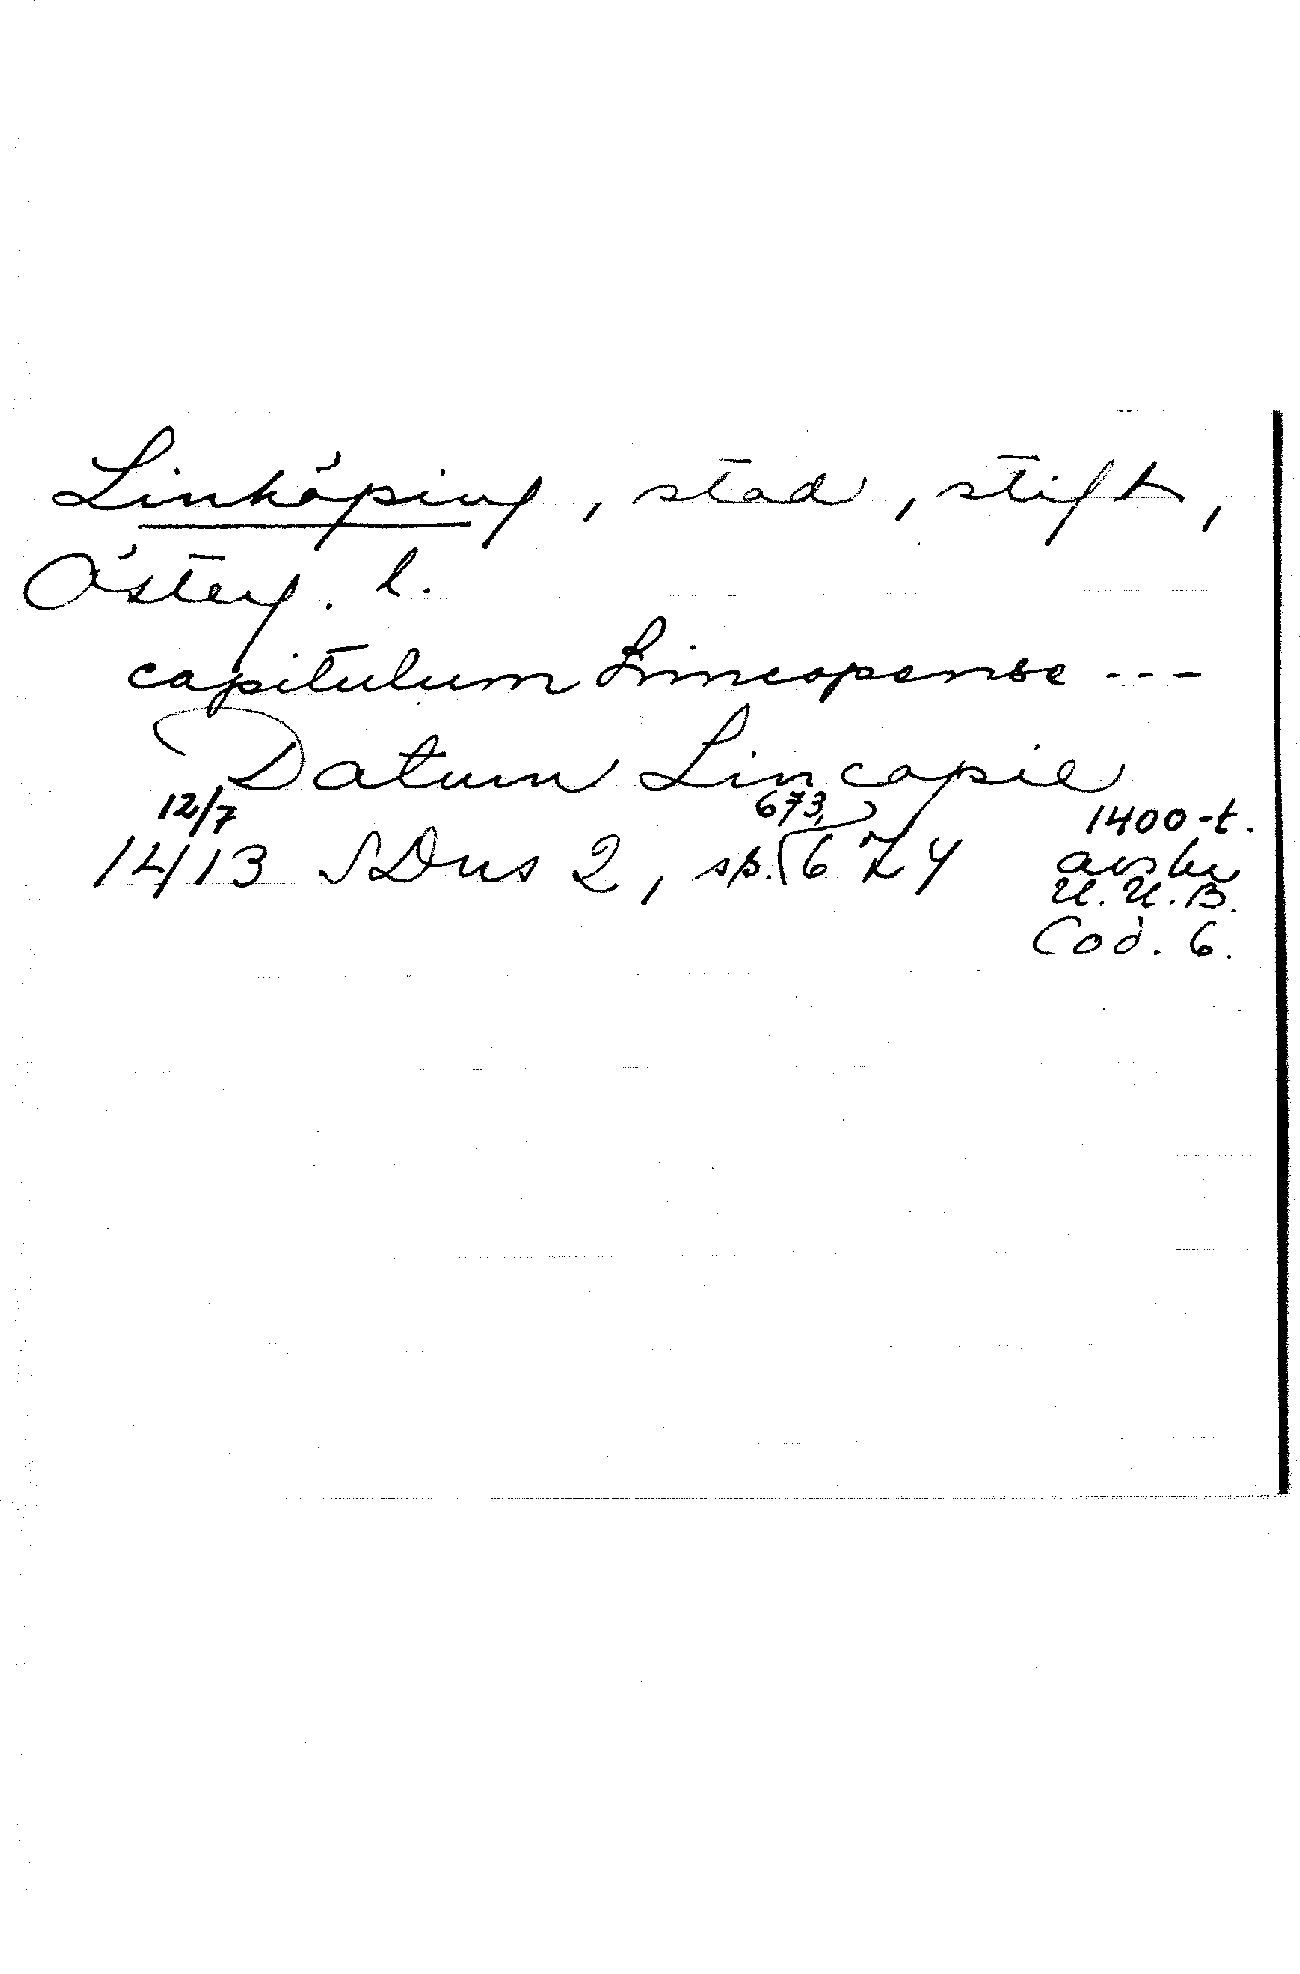 Linköping, stad, stift,
Österg. l.
capitulum Lincopense ---
Datum Lincopie
12/7 673, 1400-t.
1413 SDns 2, sp. 674 avskr
U.U.B.
Cod. 6.